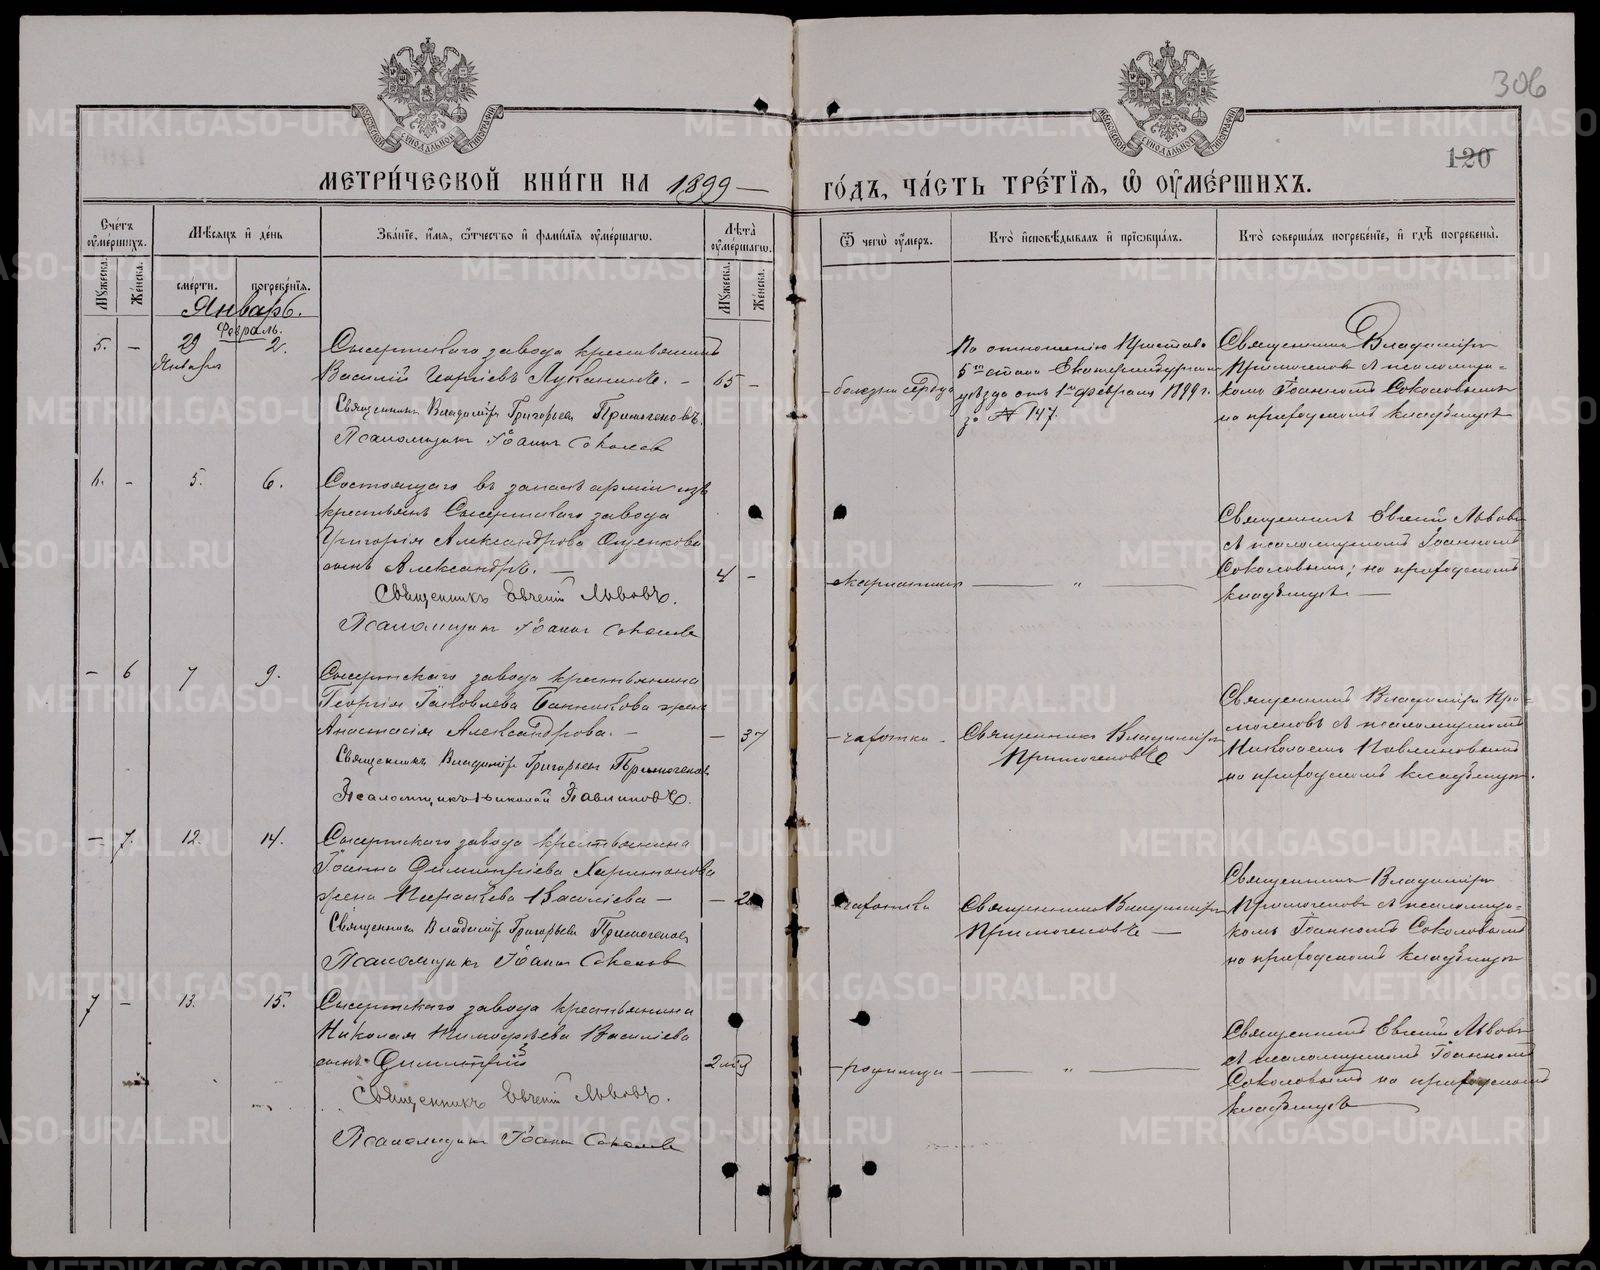 306
120
МЕТРИ́ЧЕСКОЙ КНИ́ГИ НА 1899 —
ГО́ДЪ, ЧА́СТЬ ТРЕ́ТЇѦ, Ѽ ОУ҆МЕ́РШИХЪ.
Сче́тъ оу҆ме́ршихъ.
Мѣ́сѧцъ и҆ де́нь
Зва́нїе, и҆́мѧ, ѻ҆́тчество и҆ фамѝлїѧ оу҆ме́ршагѡ.
Лѣ́та оу҆ме́ршагѡ.
Ѿ чегѡ̀ оу҆́меръ.
Кто̀ и҆сповѣ́дывалъ и҆ прїѡбща́лъ.
Кто̀ соверша́лъ погребе́нїе, и҆ гдѣ̀ погребены̀.
Мꙋ́жеска.
Же́нска.
сме́рти.
погребе́нїѧ.
Мꙋ́жеска.
Же́нска.
Январь.
Февраль.
5. — 29 Января 2.
Сысертскаго завода крестьянинъ
Василій Георгіевъ Луканинъ. — 65 —
Священникъ Владиміръ Григорьевъ Примогеновъ.
Псаломщикъ Іоаннъ Соколовъ
болезни сердца
По отношенію Пристава
5го стана Екатеринбургскаго
уѣзда отъ 1го февраля 1899 г.
за № 147.
Священникъ Владиміръ
Примогеновъ съ псаломщи-
комъ Іоанномъ Соколовымъ
на приходскомъ кладбищѣ
6. — 5. 6.
Состоящаго въ запасѣ арміи изъ
крестьянъ Сысертскаго завода
Григорія Александрова
сынъ Александръ. — 4 —
Священникъ Евгеній Львовъ.
Псаломщикъ Іоаннъ Соколовъ
— „ —
Священникъ Евгеній Львовъ
съ псаломщикомъ Іоанномъ
Соколовымъ; на приходскомъ
кладбищѣ —
— 6 7 9.
Сысертскаго завода крестьянина
Георгія Іаковлева Банникова жена
Анастасія Александрова. — — 37
Священникъ Владиміръ Григорьевъ Примогеновъ.
Псаломщикъ Николай Павлиновъ.
чахотка
Священникъ Владиміръ
Примогеновъ
Священникъ Владиміръ При-
могеновъ съ псаломщикомъ
Николаемъ Павлиновымъ
на приходскомъ кладбищѣ.
— 7. 12. 14.
Сысертскаго завода крестьянина
Іоанна Димитріева Харитонова
жена Параскева Василіева —
Священникъ Владиміръ Григорьевъ Примогеновъ
Псаломщикъ Іоаннъ Соколовъ
чахотка
Священникъ Владиміръ
Примогеновъ —
Священникъ Владиміръ
Примогеновъ съ псаломщи-
комъ Іоанномъ Соколовымъ
на приходскомъ кладбищѣ
7 — 13. 15.
Сысертскаго завода крестьянина
Николая Тимофѣева Василіева
сынъ Димитрій
Священникъ Евгеній Львовъ.
Псаломщикъ Іоаннъ Соколовъ
— родимца —
— „ —
Священникъ Евгеній Львовъ
съ псаломщикомъ Іоанномъ
Соколовымъ на приходскомъ
кладбищѣ
METRIKI.GASO-URAL.RU